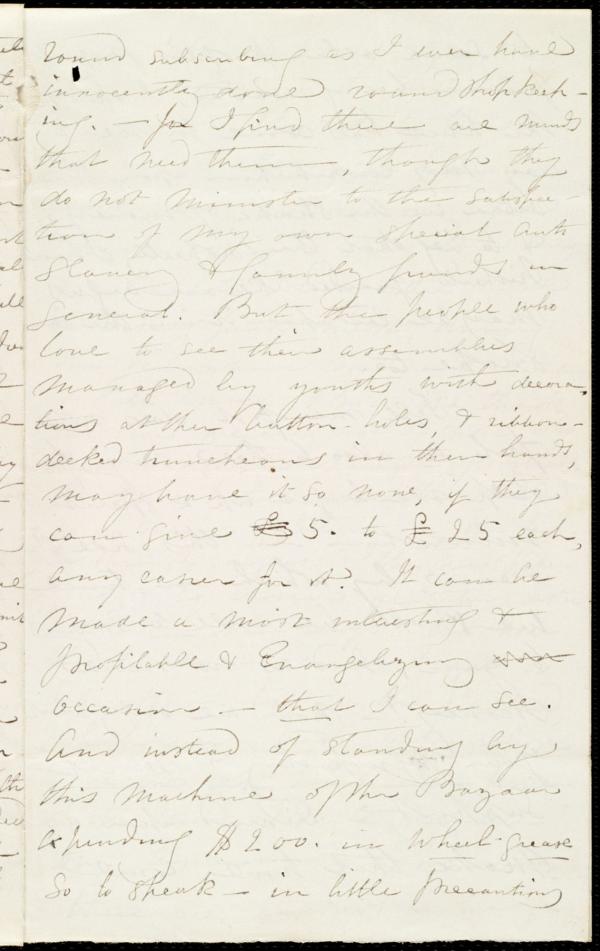 round subscribing as I ever have
innocently done round shopkeep-
ing. — for I find there are minds
that need them, though they
do not minister to the satisfac-
tion of my own special anti
slavery & family friends in
general. But the people who
love to see their assemblies
managed by youths with decora-
tions at their button-holes, & ribbon-
decked truncheons in their hands,
may have it so now, if they
can give £5. to £25 each,
any easier for it. It can be
made a most interesting &
profitable & Evangelizing
occasion — that I can see.
And instead of standing by
this machine of the Bazaar
expending $200. in wheel-grease
so to speak — in little precautions